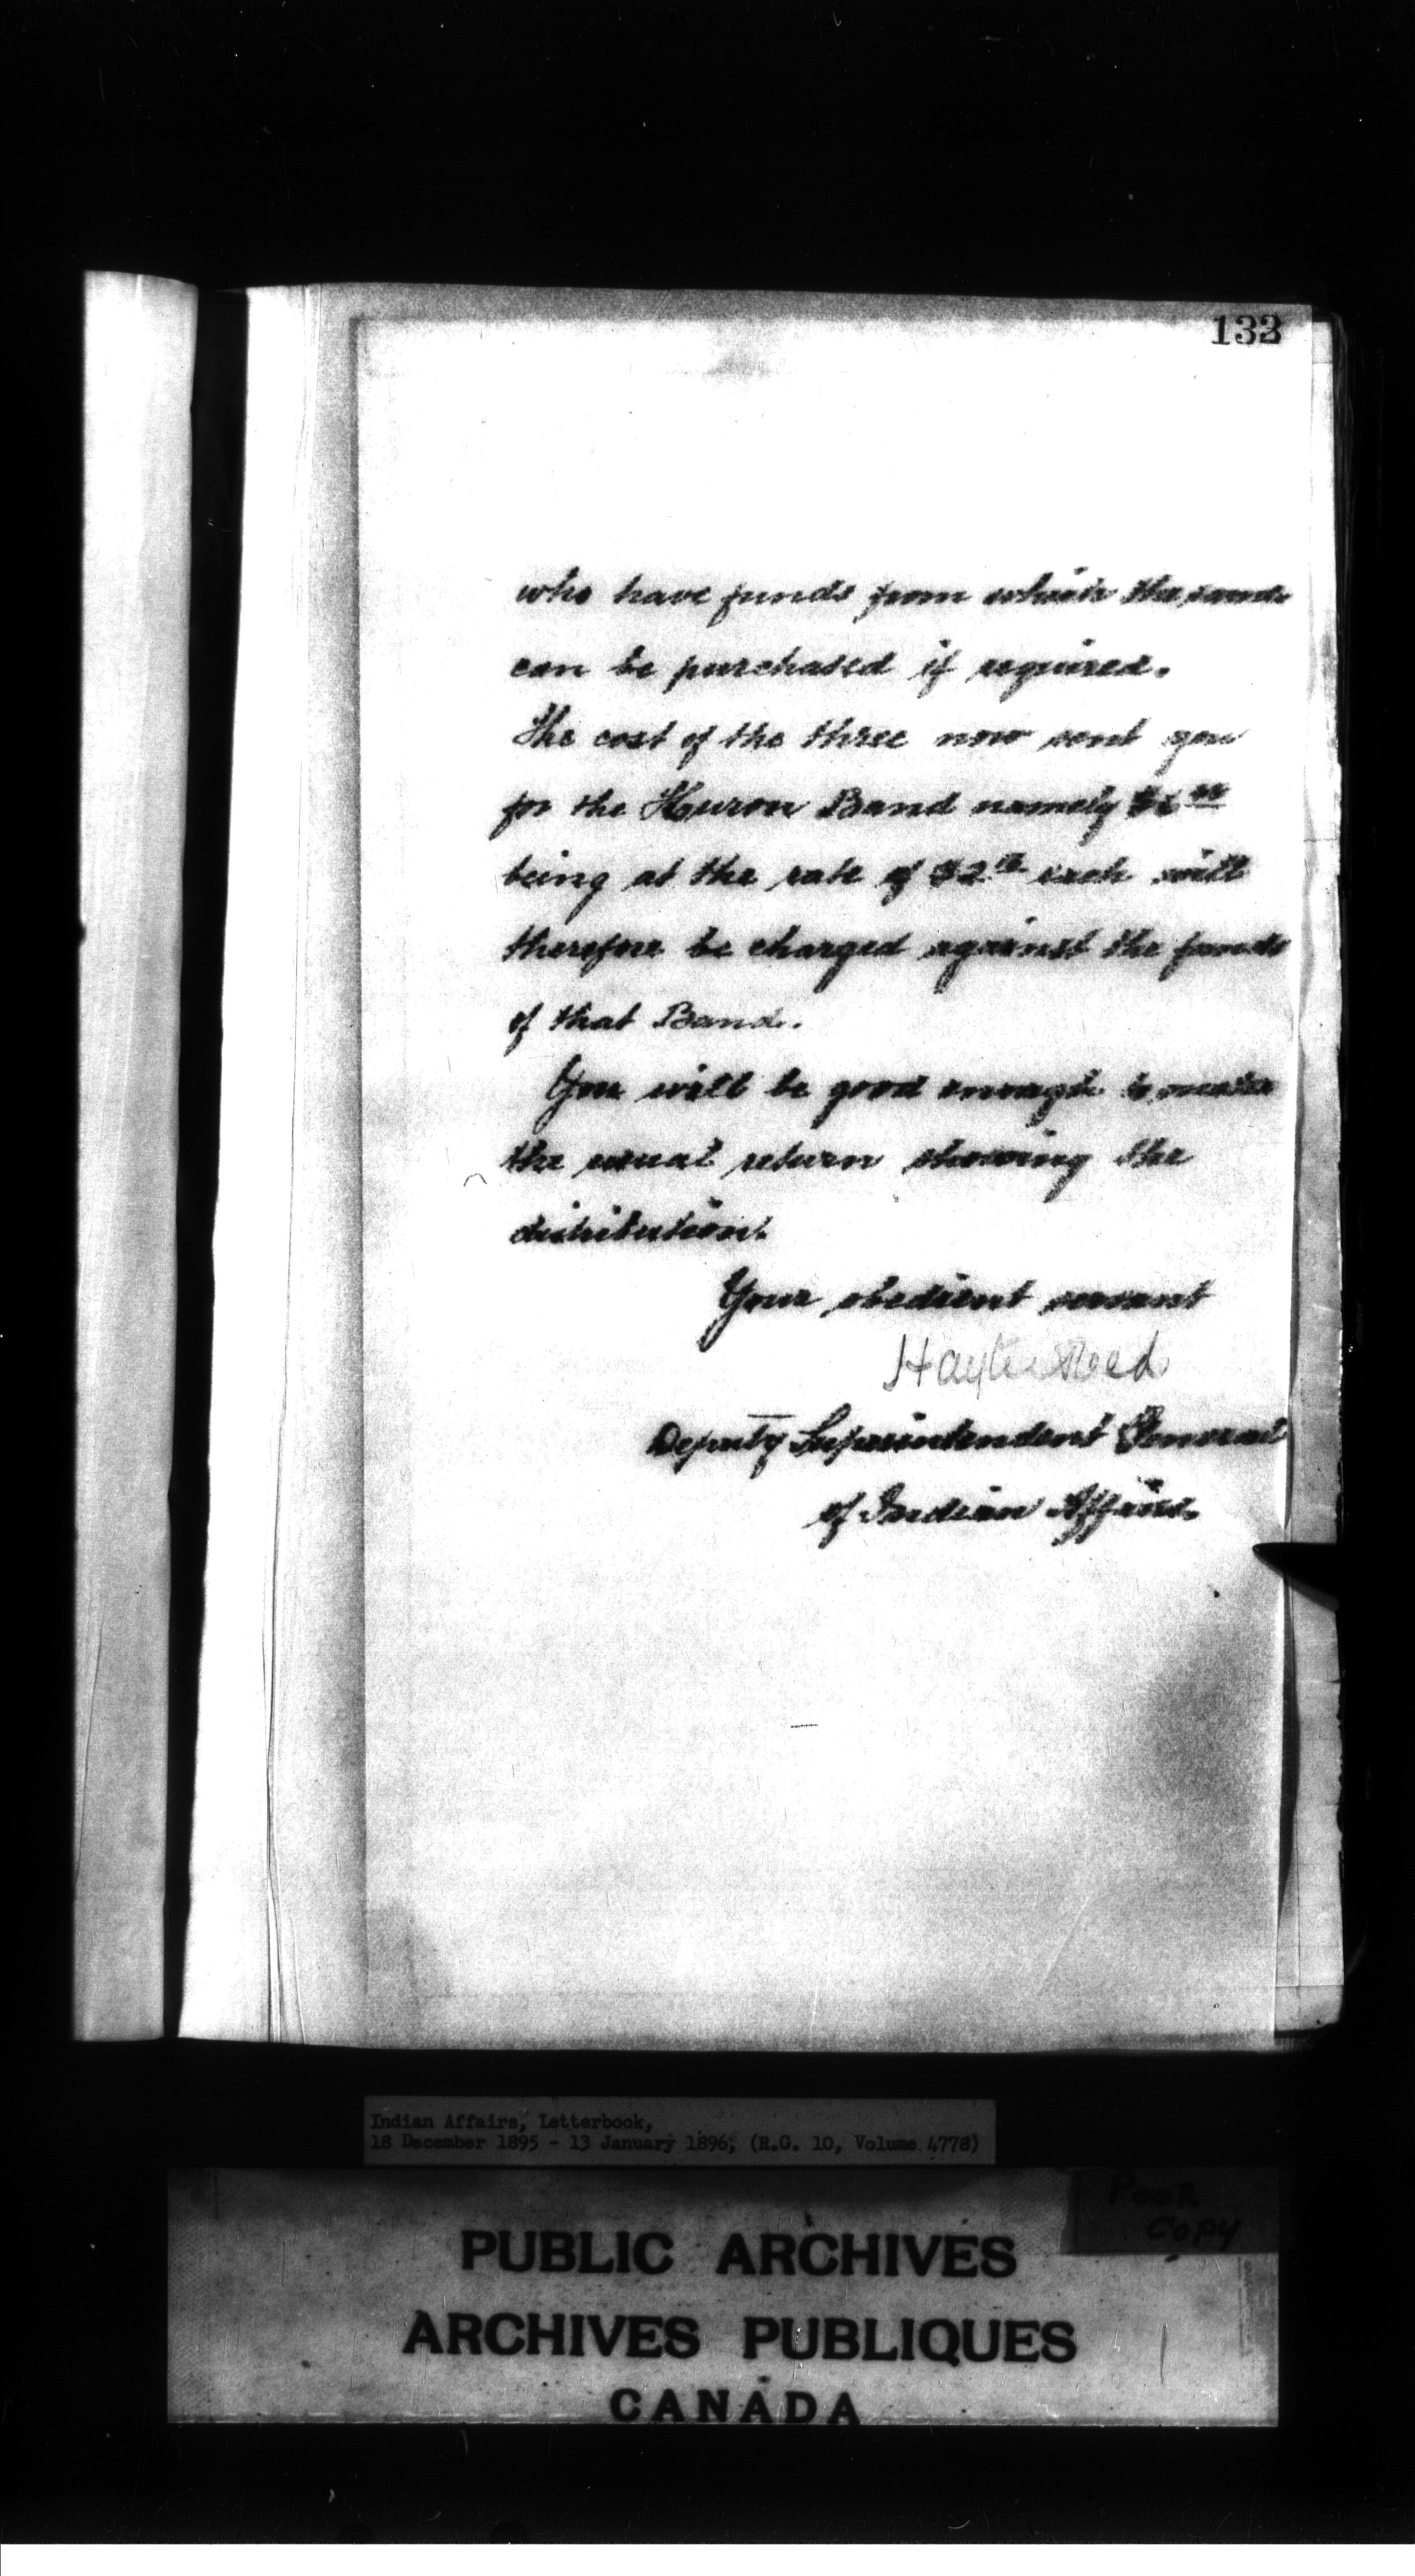 133
who have funds from which the same
can be purchased if required.
The cost of the three now sent you
for the Huron Band namely
being at the rate of $2 each will
therefore be charged against the funds
of that Band.
You will be good enough to make
the usual return showing the
distribution.
Your obedient servant
Hayter Reed
Deputy Superintendent General
of Indian Affairs.
Indian Affairs, Letterbook,
18 December 1895 - 13 January 1896; (R.G. 10, Volume 4778)
Poor
Copy
PUBLIC ARCHIVES
ARCHIVES PUBLIQUES
CANADA